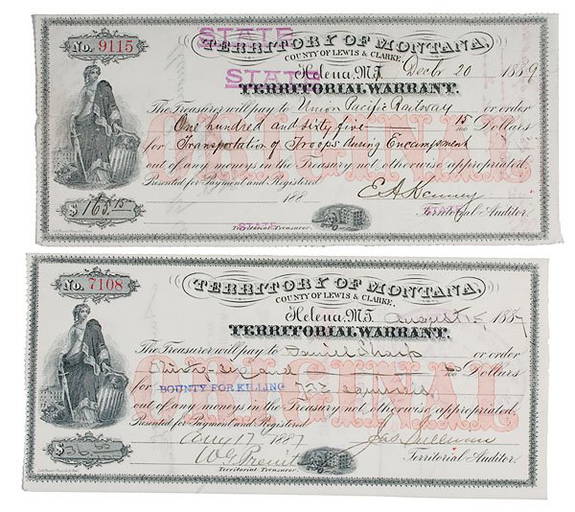 No. 9115
STATE
TERRITORY OF MONTANA,
COUNTY OF LEWIS & CLARKE.
STATE
Helena, M.T. Decbr 20 1889
TERRITORIAL WARRANT.
The Treasurer will pay to Union Pacific Railway or order
One hundred and sixty five 15/100 Dollars
for Transportation of Troops during Encampment
out of any moneys in the Treasury not otherwise appropriated.
Presented for Payment and Registered
188
ORIGINAL
$165.15
E A Kenney
STATE
Territorial Auditor.
Territorial Treasurer
No. 7108
TERRITORY OF MONTANA,
COUNTY OF LEWIS & CLARKE.
Helena, M.T. August 15 1887
TERRITORIAL WARRANT.
The Treasurer will pay to Daniel Sharp or order
Thirty-six and Dollars
for BOUNTY FOR KILLING squirrels
out of any moneys in the Treasury not otherwise appropriated.
Presented for Payment and Registered
ORIGINAL
Aug 17 1887
$36
Jas Sullivan
Territorial Auditor.
Territorial Treasurer